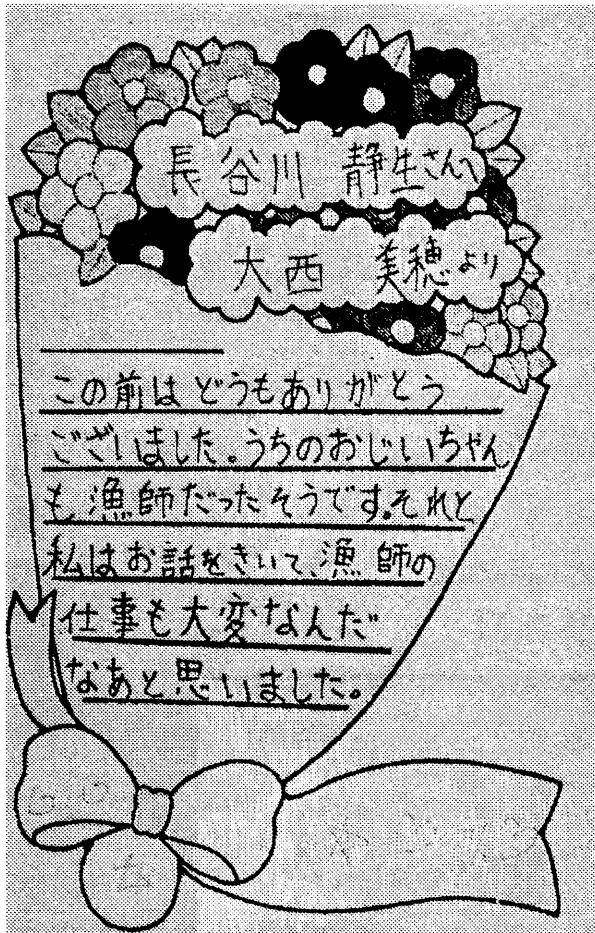 長谷川 静生さんへ
大西 美穂より
この前はどうもありがとう
ございました。うちのおじいちゃん
も漁師だったそうです。それと
私はお話をきいて、漁師の
仕事も大変なんだ
なあと思いました。